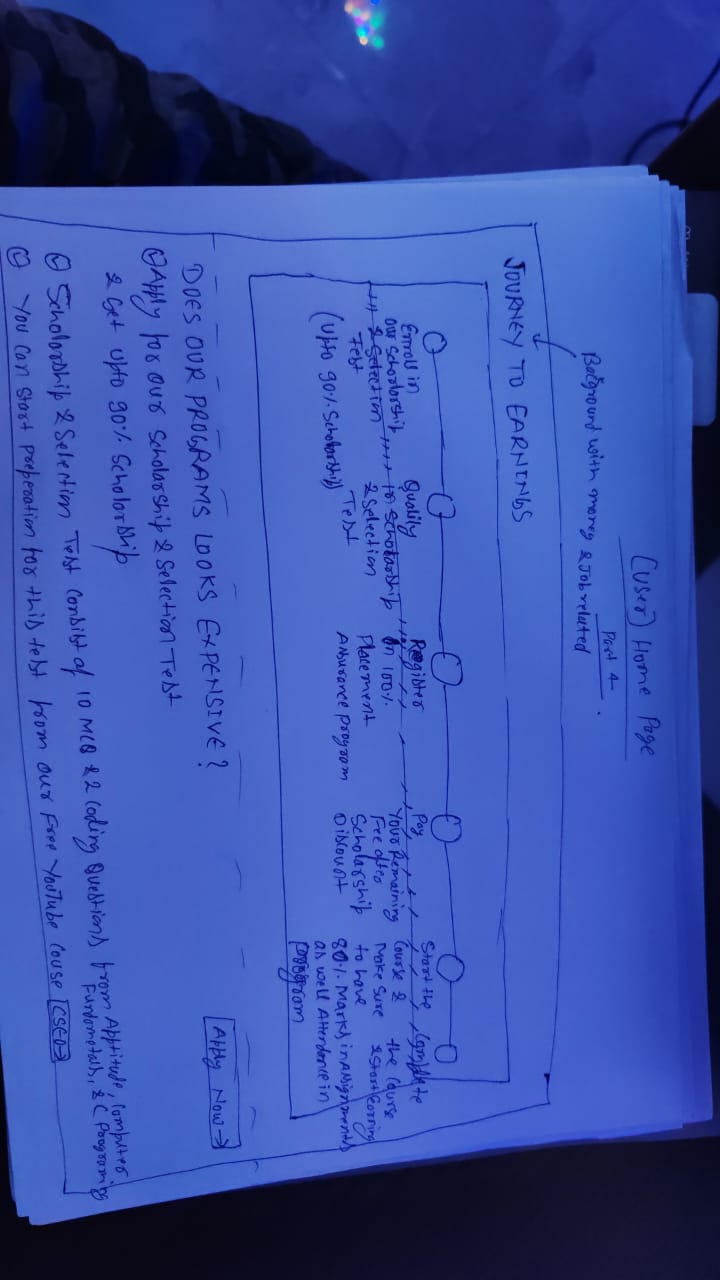 (User) Home Page
Part 4
Background with money & Job related
JOURNEY TO EARNINGS
Enroll in
our Scholarship
& Selection
Test
(Upto 90% Scholarship)
Qualify
in Scholarship
& Selection
Test
Register
in 100%
Placement
Assurance program
Pay
Your Remaining
Fee after
Scholarship
Discount
Start the
Course &
Make Sure
to have
80% Marks in Assignments
as well Attendance in
program
Complete
the Course
& Start Earning
DOES OUR PROGRAMS LOOKS EXPENSIVE?
Apply Now →
Apply for our Scholarship & Selection Test
& Get upto 90% Scholarship
Scholarship & Selection Test consist of 10 MCQ & 2 Coding Questions from Apptitude, Computer
Fundametals, & C Programing
You can start preperation for this test from our Free YouTube Couse